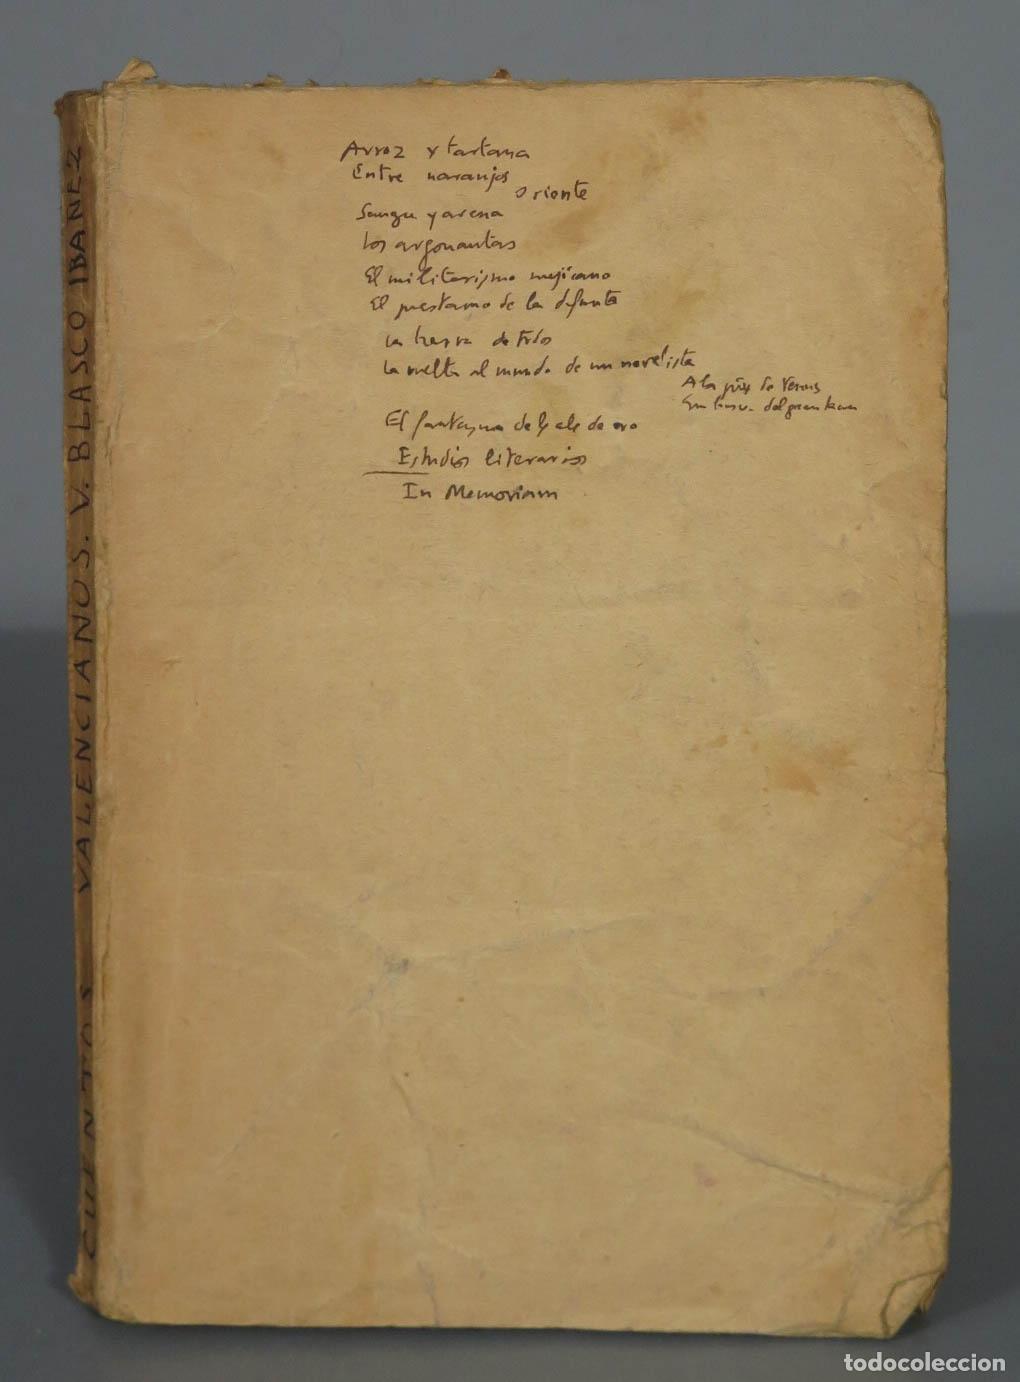 CUENTOS VALENCIANOS. V. BLASCO IBAÑEZ
Arroz y tartana
Entre naranjos
Oriente
Sangre y arena
Los argonautas
El militarismo mejicano
El prestamo de la difunta
La tierra de todos
La vuelta al mundo de un novelista
A los pies de Venus
En busca del gran kan
El fantasma de las alas de oro
Estudios literarios
In Memoriam
todocoleccion